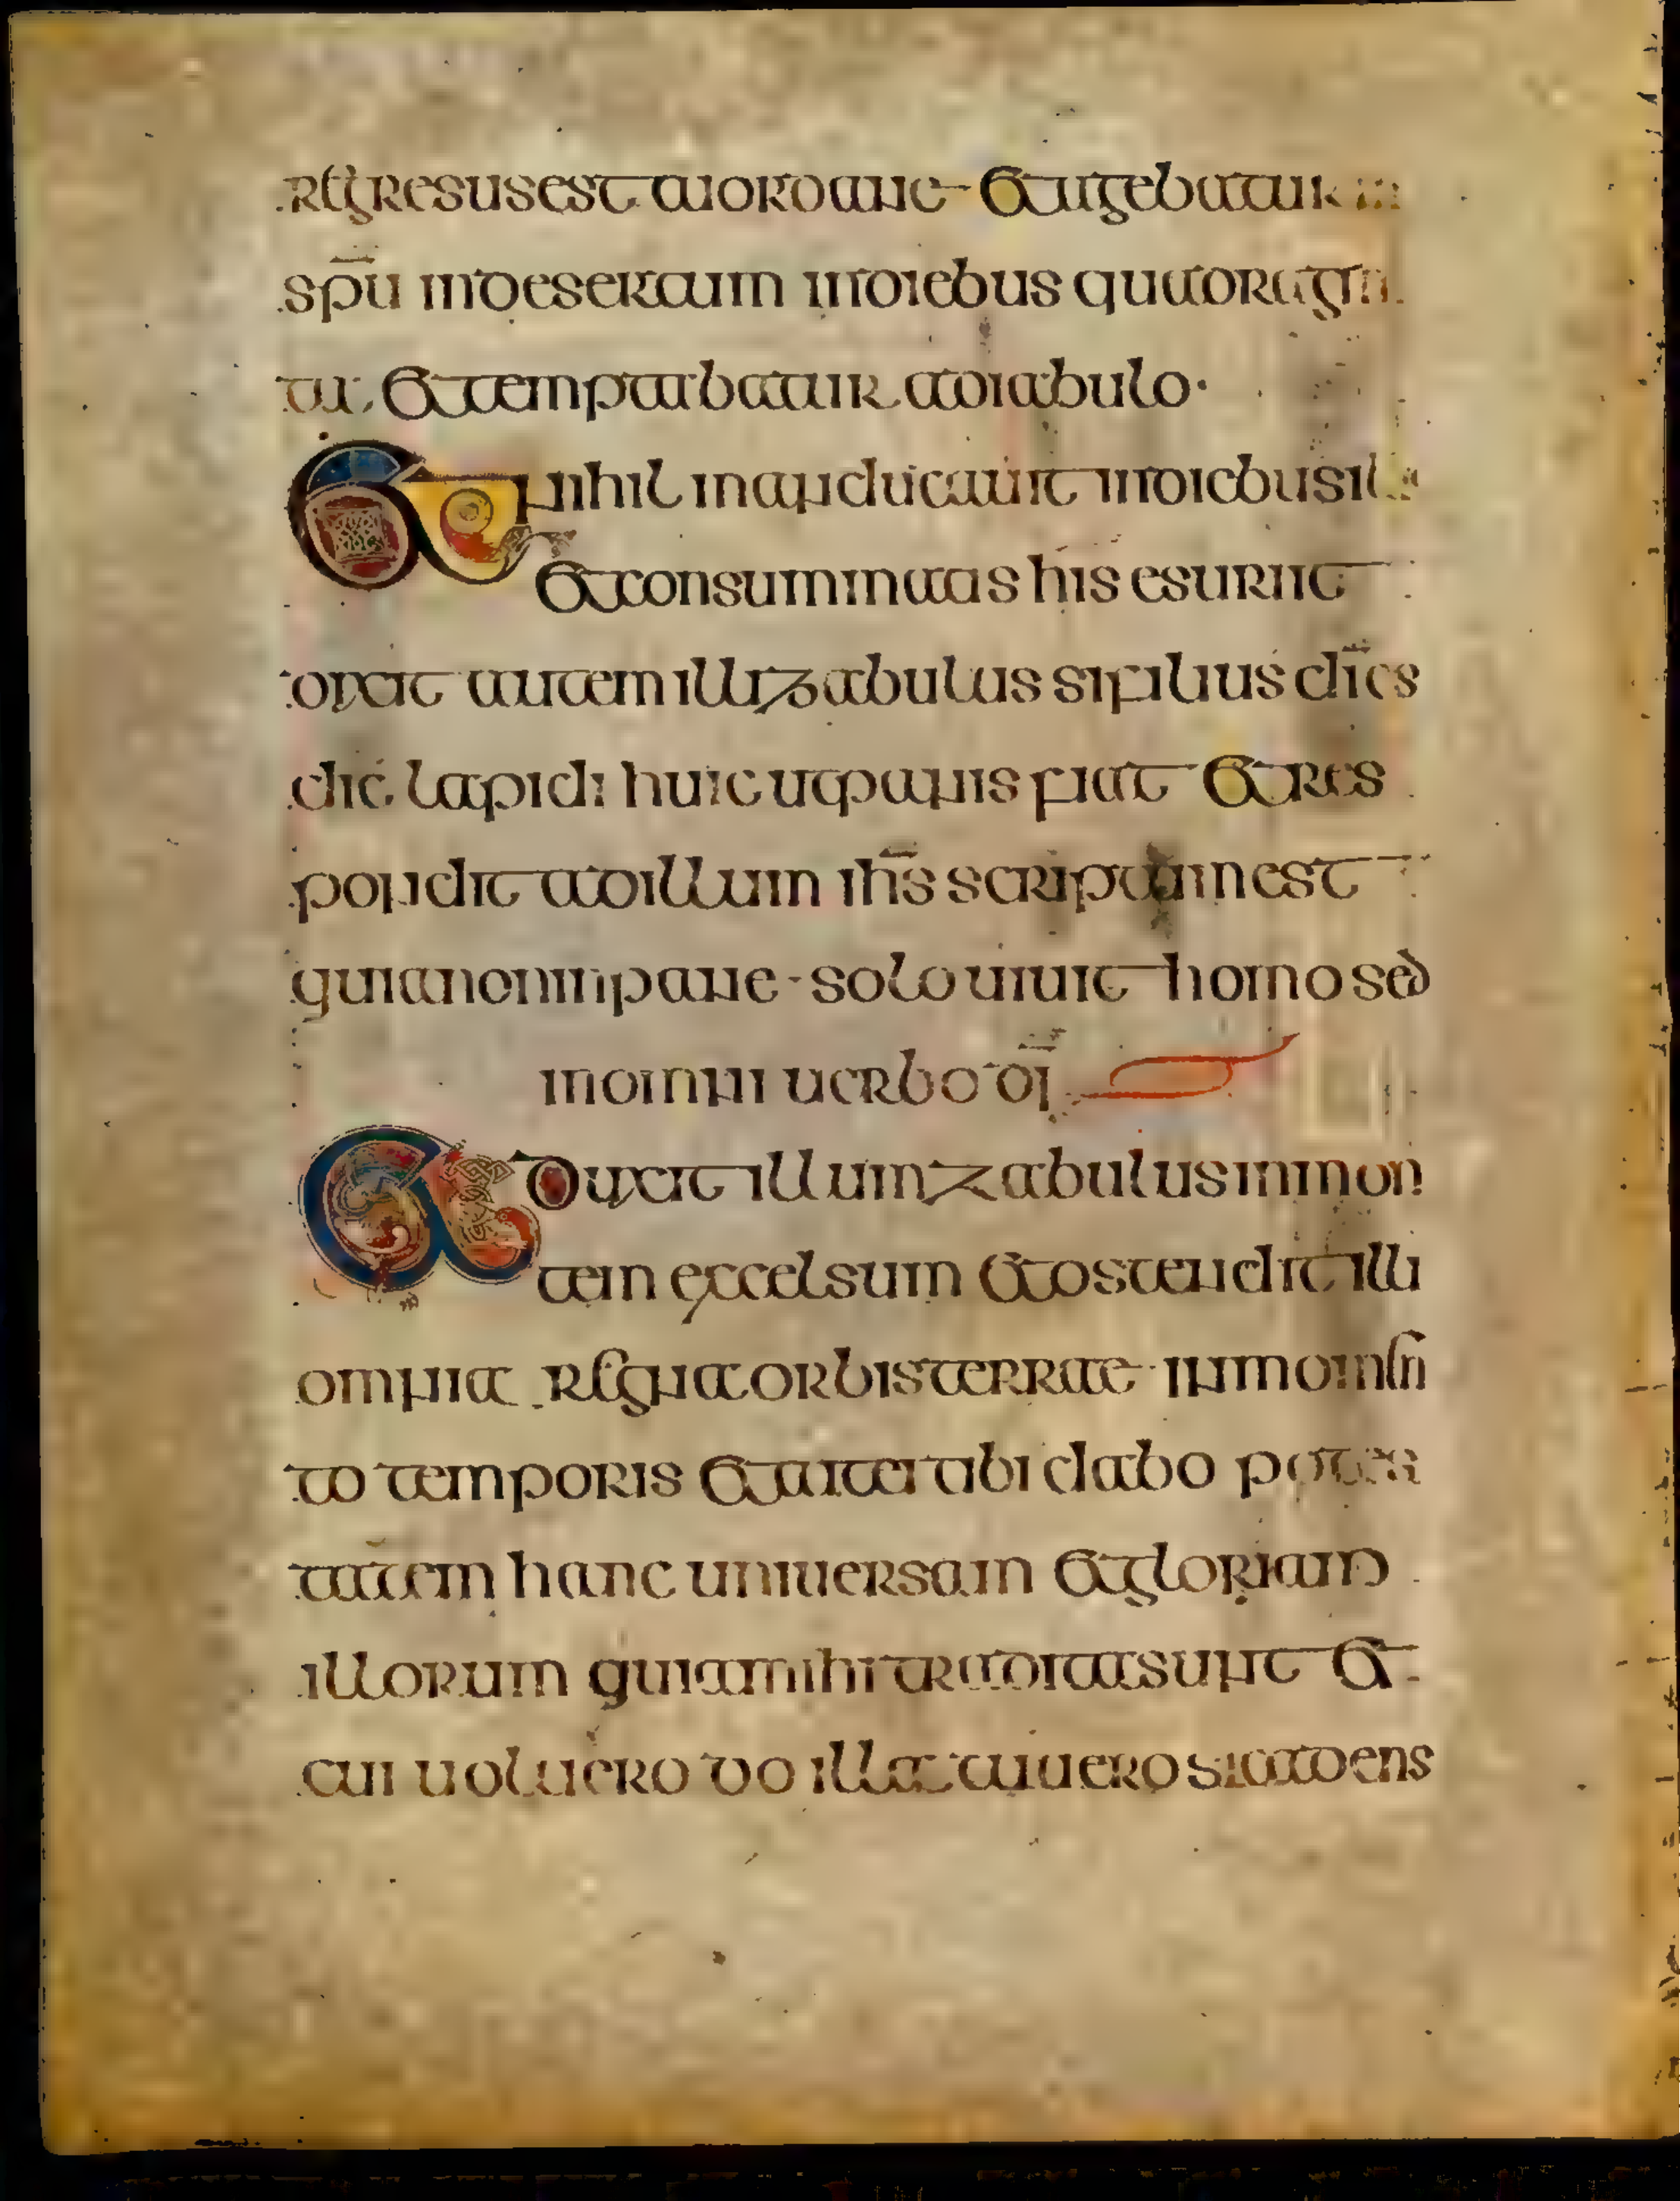 regresus est aiordane et agebatur in
sp̄u indesertum in diebus quadragin
ta, et temptabatur adiabulo·
Et nihil manducauit in diebus il
et consummatis his esuriit
dixit autem illi zabulus si filius dī es
dic lapidi huic ut panis fiat et res
pondit ad illum ih̄s scriptum est
quia non in pane solo uiuit homo sed
in omni uerbo dī
Et duxit illum zabulus in mon
tem excelsum et ostendit illi
omnia regna orbis terrae in momen
to temporis et ait ei tibi dabo potes
tatem hanc uniuersam et gloriam
illorum quia mihi tradita sunt et
cui uoluero do illa tu uero si ad ens